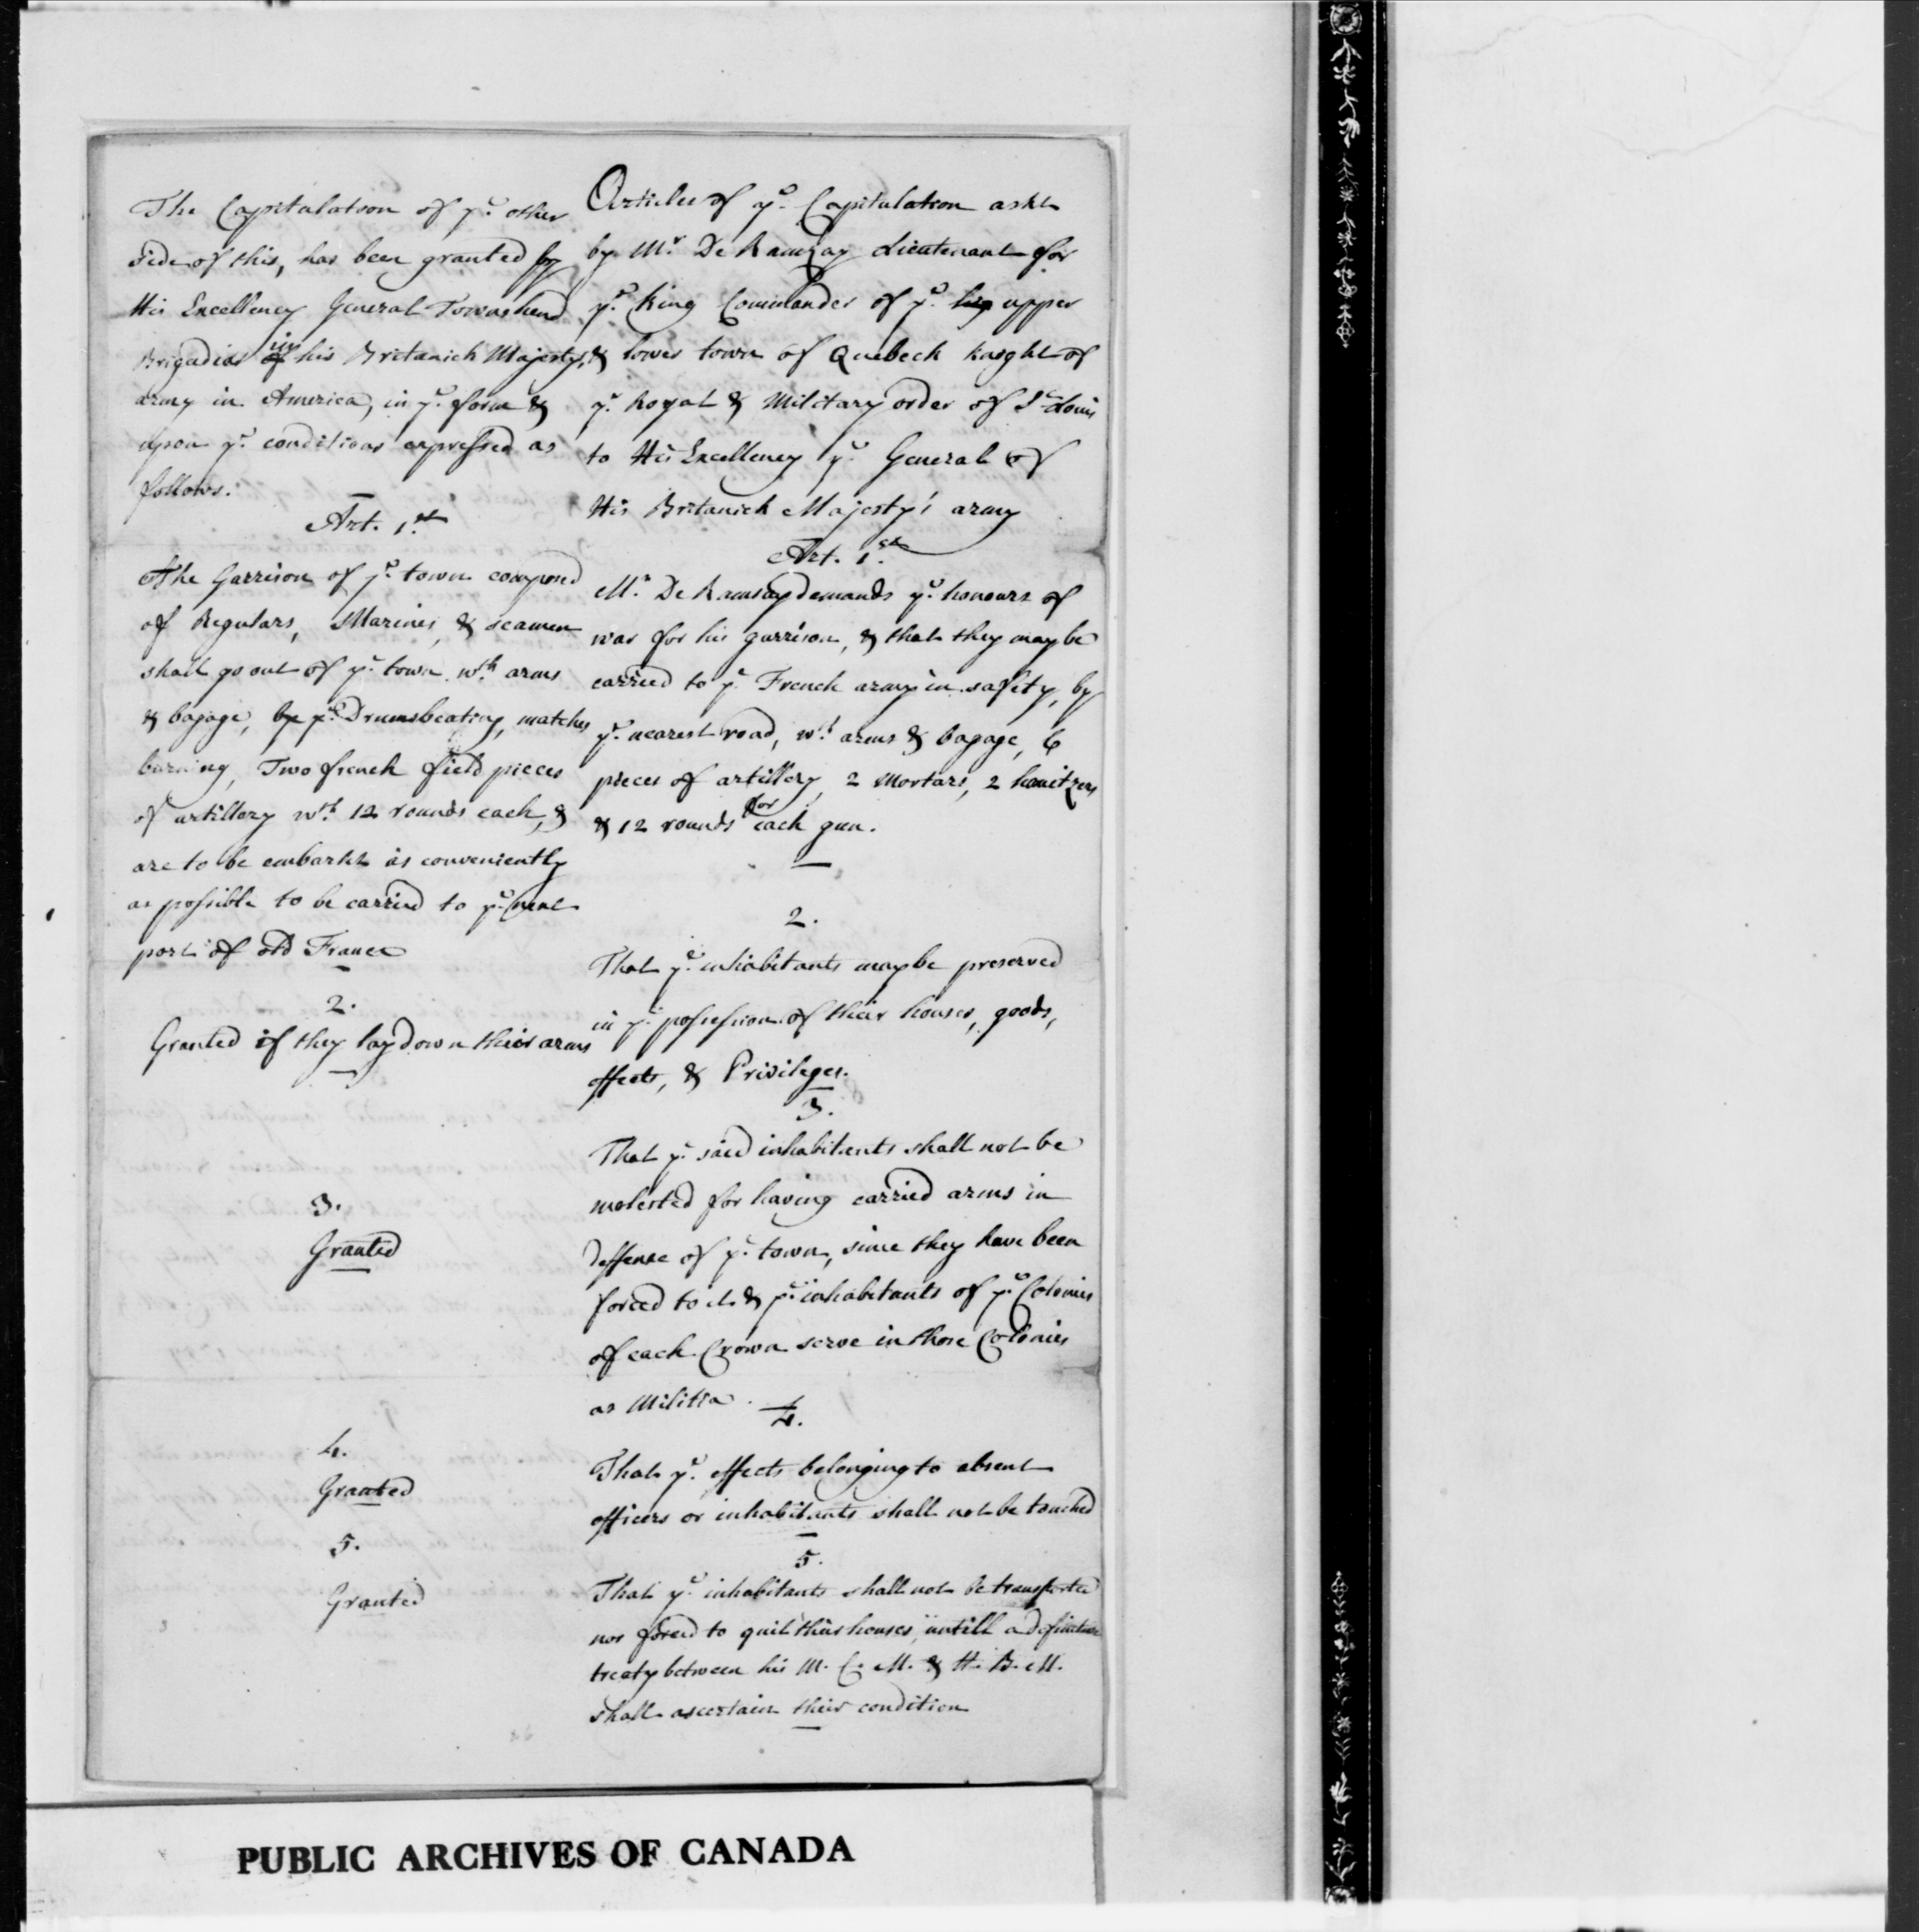 The Capitulation of yᵉ other
side of this, has been granted by
His Excellency General Townshend
Brigadier in his Britanick Majesty's
army in America, in yᵉ form &
upon yᵉ conditions expressed as
follows.
Art. 1st
The Garrison of yᵉ town composed
of Regulars, Marines, & seamen
shall go out of yᵉ town wth arms
& bagage, Drums beating, matches
burning, Two french field pieces
of artillery wth 12 rounds each, &
are to be embarkt as conveniently
as possible to be carried to yᵉ next
port of old France
2.
Granted if they lay down their arms
3.
Granted
4.
Granted
5.
Granted
Articles of yᵉ Capitulation askt
by Mr De Ramsay Lieutenant for
yᵉ King Commander of yᵉ upper
& lower town of Quebeck Knight of
yᵉ Royal & Military order of St Louis
to His Excellency yᵉ General of
His Britanick Majesty's army
Art. 1st
Mr De Ramsay demands yᵉ honours of
war for his garrison, & that they may be
carried to yᵉ French army in safety, by
yᵉ nearest road, wth arms & bagage, 6
pieces of artillery, 2 Mortars, 2 hauitzers
& 12 rounds for each gun.
2.
That yᵉ inhabitants may be preserved
in yᵉ possession of their houses, goods,
effects, & Privileges.
3.
That yᵉ said inhabitants shall not be
molested for having carried arms in
deffense of yᵉ town, since they have been
forced to it & yᵉ inhabitants of yᵉ Colonies
of each Crown serve in those Colonies
as Militia.
4.
That yᵉ effects belonging to absent
officers or inhabitants shall not be touched
5.
That yᵉ inhabitants shall not be transported
nor forced to quit their houses, untill a definitive
treaty between his M. C. M. & H. B. M.
shall ascertain their condition
PUBLIC ARCHIVES OF CANADA